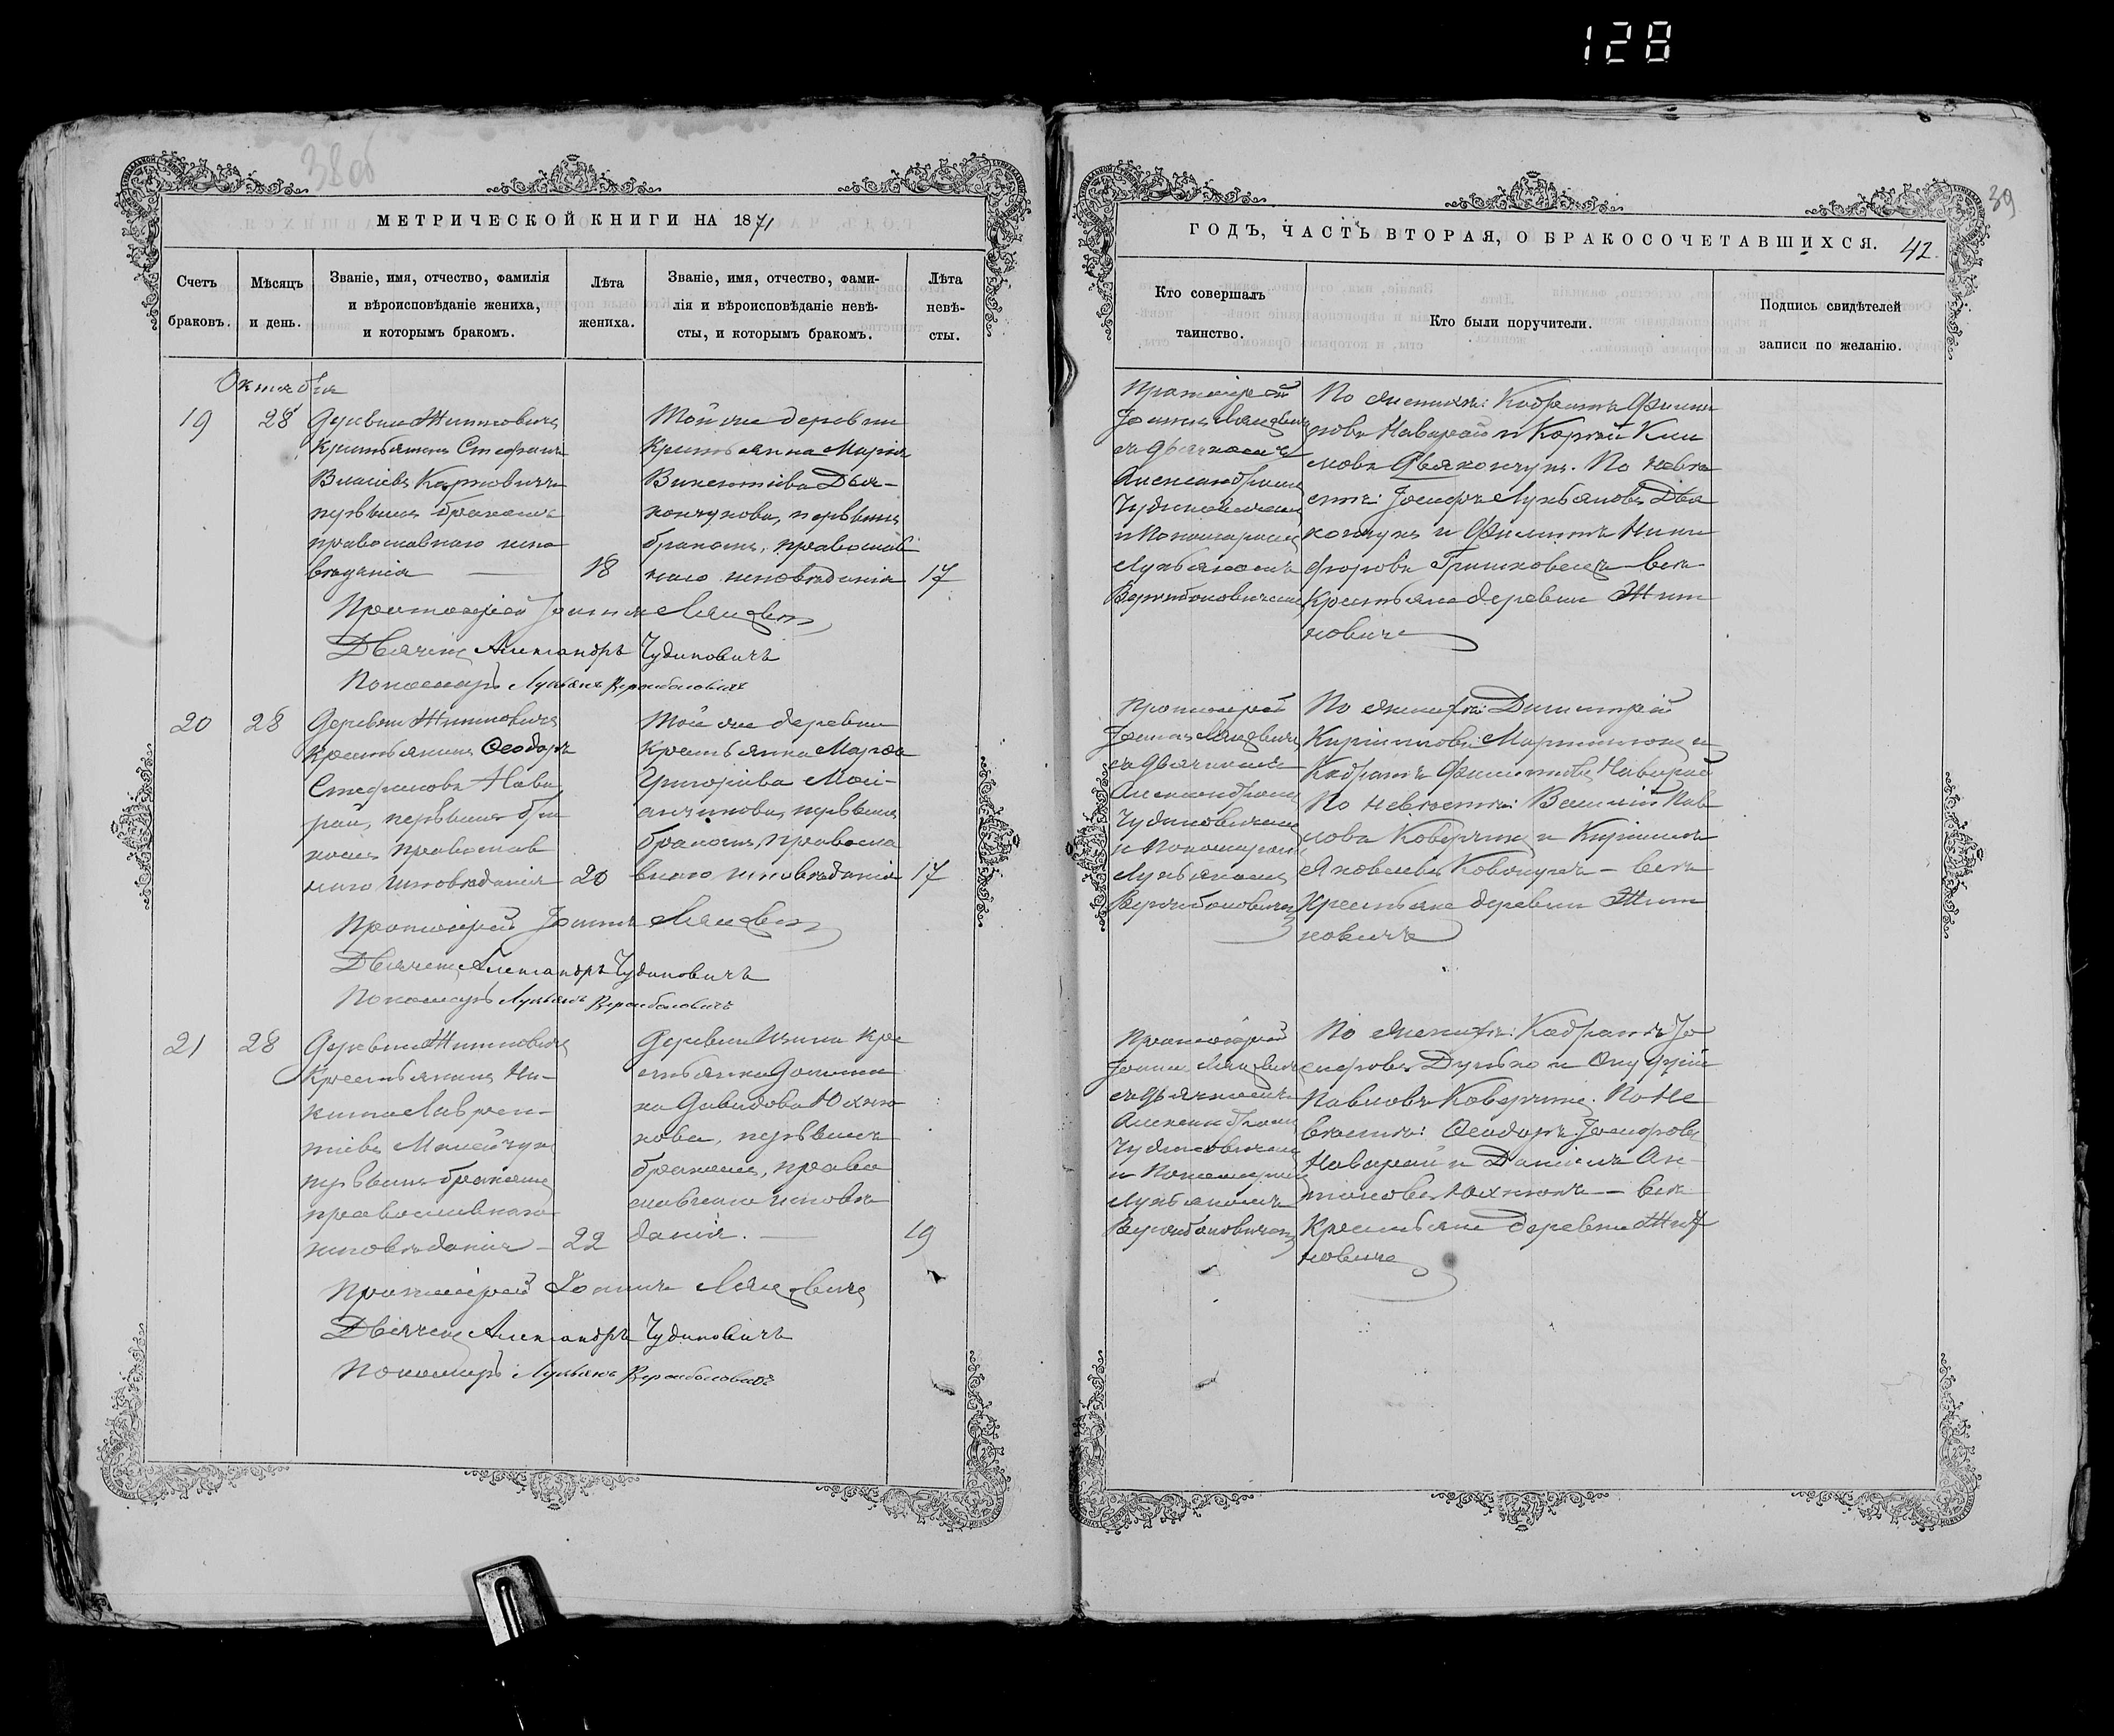 128
38 об
МЕТРИЧЕСКОЙ КНИГИ НА 1871
Счетъ браковъ.
Мѣсяцъ и день.
Званіе, имя, отчество, фамилія
и вѣроисповѣданіе жениха,
и которымъ бракомъ.
Лѣта жениха.
Званіе, имя, отчество, фами-
лія и вѣроисповѣданіе невѣ-
сты, и которымъ бракомъ.
Лѣта невѣ-
сты.
Октября
19
28
Деревни Житновичъ
Крестьянинъ Стефанъ
Карповичъ
первымъ бракомъ
православнаго испо
вѣданія
18
Той же деревни
Крестьянка Марія
Викентіева Дья-
кончукова, первымъ
бракомъ, православ
наго исповѣданія
17
Протоіерей Іоаннъ
Дьячекъ Александръ Чудиновичъ
Пономарь Лукьянъ
20
28
Деревни Житновичъ
крестьянинъ Ѳеодоръ
Стефановъ Нава
рай, первымъ бра
комъ православ
наго исповѣданія
20
Той же деревни
крестьянка Марѳа
Григоріева Мойс-
первымъ
бракомъ, правосла
внаго исповѣданія
17
Протоіерей Іоаннъ
Дьячекъ Александръ Чудиновичъ
Пономарь Лукьянъ
21
28
Деревни Житновичъ
Крестьянинъ Ни-
кита Лаврен-
тіевъ
первымъ бракомъ
православнаго
исповѣданія
22
Деревни Изина кре
стьянка Домни
ка Давидова Юхню
кова, первымъ
бракомъ, право
славнаго исповѣ
данія.
19
Протоіерей Іоаннъ
Дьячекъ Александръ Чудиновичъ
Пономарь Лукьянъ
39
ГОДЪ, ЧАСТЬ ВТОРАЯ, О БРАКОСОЧЕТАВШИХСЯ.
42.
Кто совершалъ
таинство.
Кто были поручители.
Подпись свидѣтелей
записи по желанію.
Протоіерей
Іоаннъ
съ дьячкомъ
Александромъ
Чудиновичемъ
и Пономаремъ
Лукьяномъ
По женихѣ: Кодратъ Филип
повъ Наварай и Карпъ Кли
мовъ Дьякончукъ. По невѣ
стѣ: Іосифъ Лукьяновъ Дья
кончукъ и Филиппъ Ники
форовъ Гришковецъ — всѣ
Крестьяне деревни Жит
новичъ
Протоіерей
Іоаннъ
съ дьячкомъ
Александромъ
Чудиновичемъ
и Пономаремъ
Лукьяномъ
По женихѣ: Димитрій
Кирилловъ Мартинюкъ и
Кодратъ Филипповъ Наварай
По невѣстѣ: Василій Пав
ловъ Коверчикъ и Кириллъ
Яковлевъ — всѣ
Крестьяне деревни Жит
новичъ
Протоіерей
Іоаннъ
съ дьячкомъ
Александромъ
Чудиновичемъ
и Пономаремъ
Лукьяномъ
По женихѣ: Кодратъ Іо
сифовъ Дунько и Онуфрій
Павловъ Коверчикъ. По не
вѣстѣ: Ѳеодоръ Іосифовъ
Наварай и Даніилъ Ан
тоновъ Юхнюкъ — всѣ
Крестьяне деревни Жит
новичъ